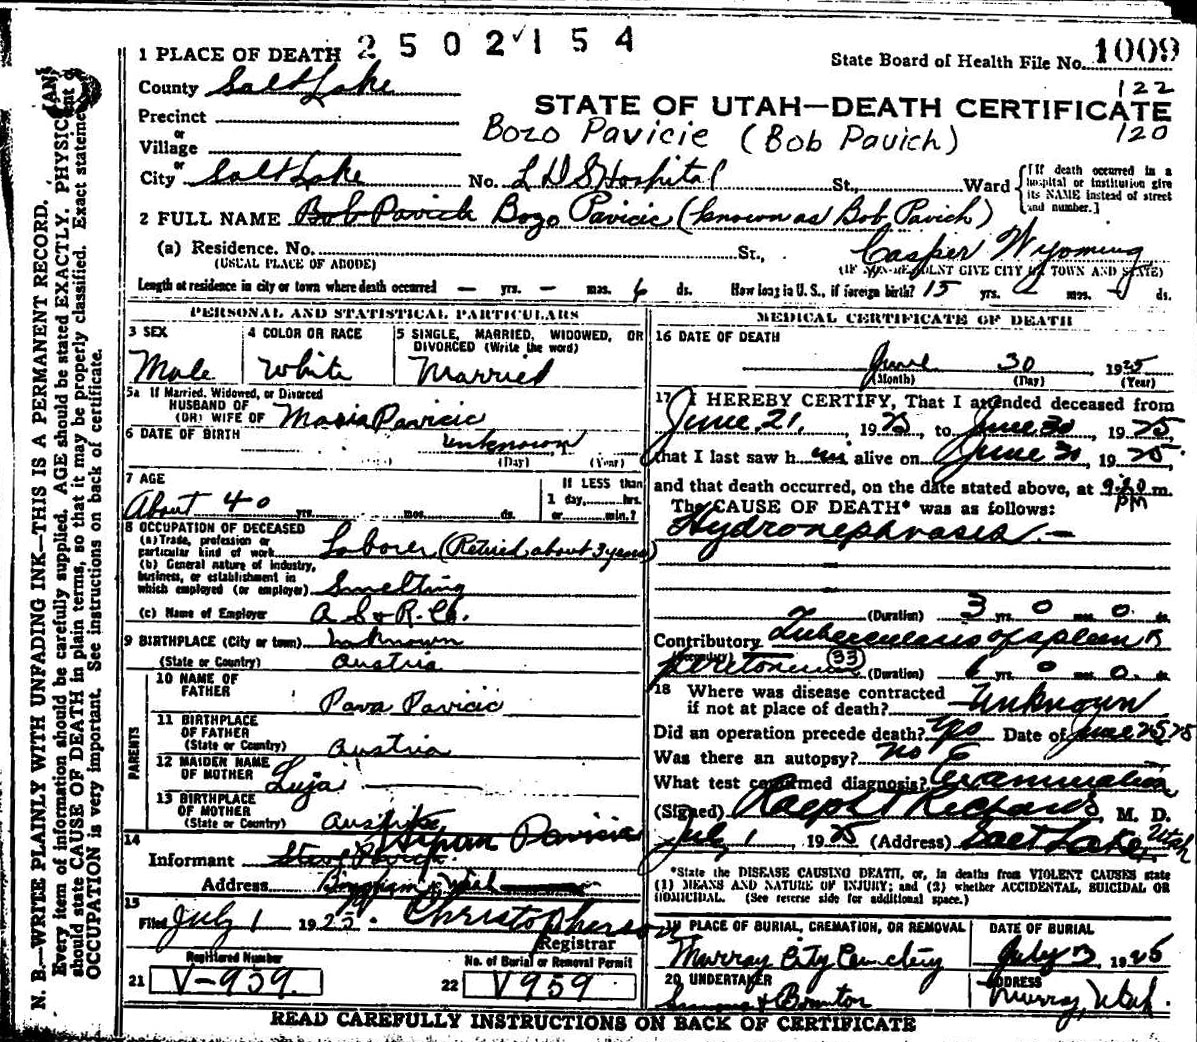 2 5 0 2 1 5 4
1 PLACE OF DEATH
State Board of Health File No. 1009
County Salt Lake
122
STATE OF UTAH—DEATH CERTIFICATE
Precinct
120
or
Bozo Pavicie (Bob Pavich)
Village
or
City Salt Lake No. L D S Hospital St., Ward
[If death occurred in a hospital or institution give its NAME instead of street and number.]
2 FULL NAME Bob Pavich Bozo Pavicic (known as Bob Pavich)
(a) Residence. No. St., Casper Wyoming
(USUAL PLACE OF ABODE) (IF NON-RESIDENT GIVE CITY OR TOWN AND STATE)
Length at residence in city or town where death occurred — yrs. — mos. 6 ds. How long in U.S., if foreign birth? 15 yrs. — mos. — ds.
PERSONAL AND STATISTICAL PARTICULARS
3 SEX
Male
4 COLOR OR RACE
White
5 SINGLE, MARRIED, WIDOWED, OR
DIVORCED (Write the word)
Married
5a If Married, Widowed, or Divorced
HUSBAND OF
(OR) WIFE OF Maria Pavicic
6 DATE OF BIRTH unknown
(Day) (Year)
7 AGE
About 40 yrs. mos. ds.
If LESS than
1 day, hrs.
or min.?
8 OCCUPATION OF DECEASED
(a) Trade, profession or
particular kind of work Laborer (Retired about 3 years)
(b) General nature of industry,
business, or establishment in
which employed (or employer) Smelting
(c) Name of Employer A S & R. Co.
9 BIRTHPLACE (City or town) Unknown
(State or Country) Austria
PARENTS
10 NAME OF
FATHER Pava Pavicic
11 BIRTHPLACE
OF FATHER
(State or Country) Austria
12 MAIDEN NAME
OF MOTHER Luja
13 BIRTHPLACE
OF MOTHER
(State or Country) Austria
14
Informant Steve Pavich Pavicic
Address Bingham, Utah
15
Filed July 1 1925. Christopherson
Registrar
Registered Number
21 V-939
No. of Burial or Removal Permit
22 V959
MEDICAL CERTIFICATE OF DEATH
16 DATE OF DEATH
June 30, 1925
(Month) (Day) (Year)
17 I HEREBY CERTIFY, That I attended deceased from
June 21, 1925, to June 30 1925,
that I last saw him alive on June 30, 1925,
and that death occurred, on the date stated above, at m.
PM
The CAUSE OF DEATH* was as follows:
Hydronephrosis.—
(Duration) 3 yrs. 0 mos. 0 ds.
Contributory Tuberculosis of spleen &
peritoneum (33) (Duration) 6 yrs. 0 mos. 0 ds.
18 Where was disease contracted
if not at place of death? Unknown
Did an operation precede death? Yes Date of June 25 25
Was there an autopsy? No
What test confirmed diagnosis? Examination
(Signed) Ralph T Richards, M. D.
July 1, 1925 (Address) Salt Lake, Utah
*State the DISEASE CAUSING DEATH, or, in deaths from VIOLENT CAUSES state
(1) MEANS AND NATURE OF INJURY; and (2) whether ACCIDENTAL, SUICIDAL OR
HOMICIDAL. (See reverse side for additional space.)
19 PLACE OF BURIAL, CREMATION, OR REMOVAL
Murray City Cemetery
DATE OF BURIAL
July 3, 1925
20 UNDERTAKER
ADDRESS
Murray, Utah.
READ CAREFULLY INSTRUCTIONS ON BACK OF CERTIFICATE
N. B.—WRITE PLAINLY WITH UNFADING INK—THIS IS A PERMANENT RECORD.
Every item of information should be carefully supplied. AGE should be stated EXACTLY. PHYSICIANS
should state CAUSE OF DEATH in plain terms, so that it may be properly classified. Exact statement of
OCCUPATION is very important. See instructions on back of certificate.